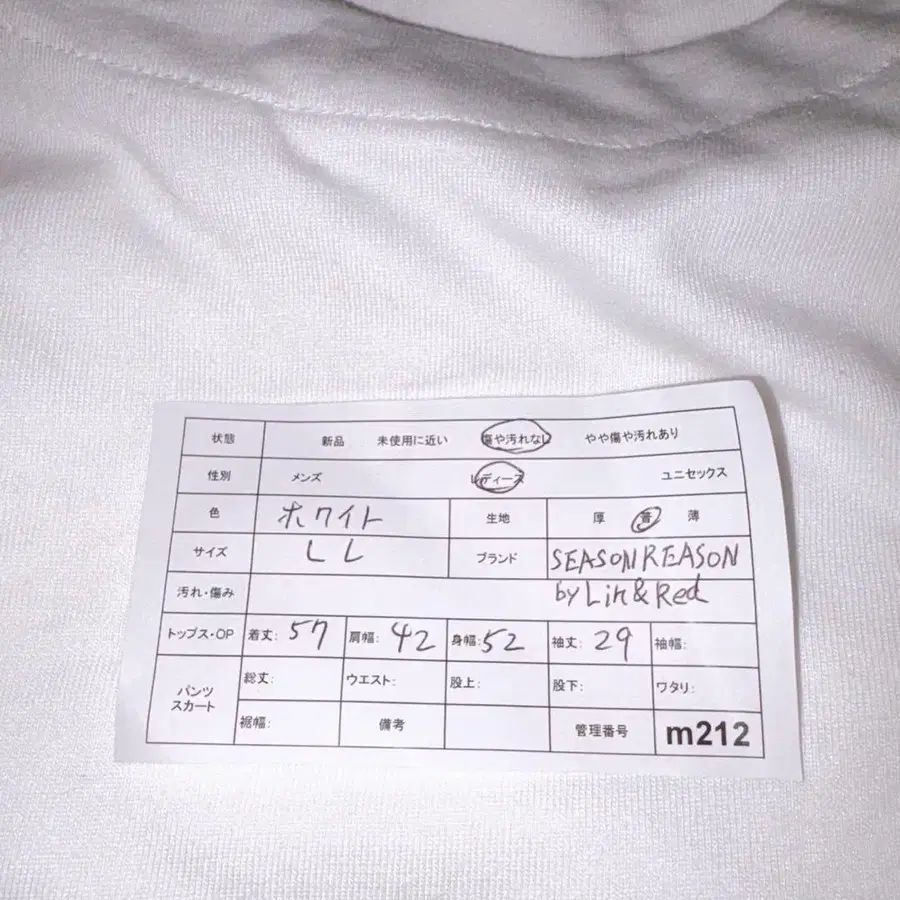 状態 新品 未使用に近い 傷や汚れなし やや傷や汚れあり
性別 メンズ レディース ユニセックス
色 ホワイト 生地 厚 普 薄
サイズ LL ブランド SEASON REASON
汚れ・傷み by Lin & Red
トップス・OP 着丈: 57 肩幅: 42 身幅: 52 袖丈: 29 袖幅:
パンツ スカート 総丈: ウエスト: 股上: 股下: ワタリ:
裾幅: 備考 管理番号 m212